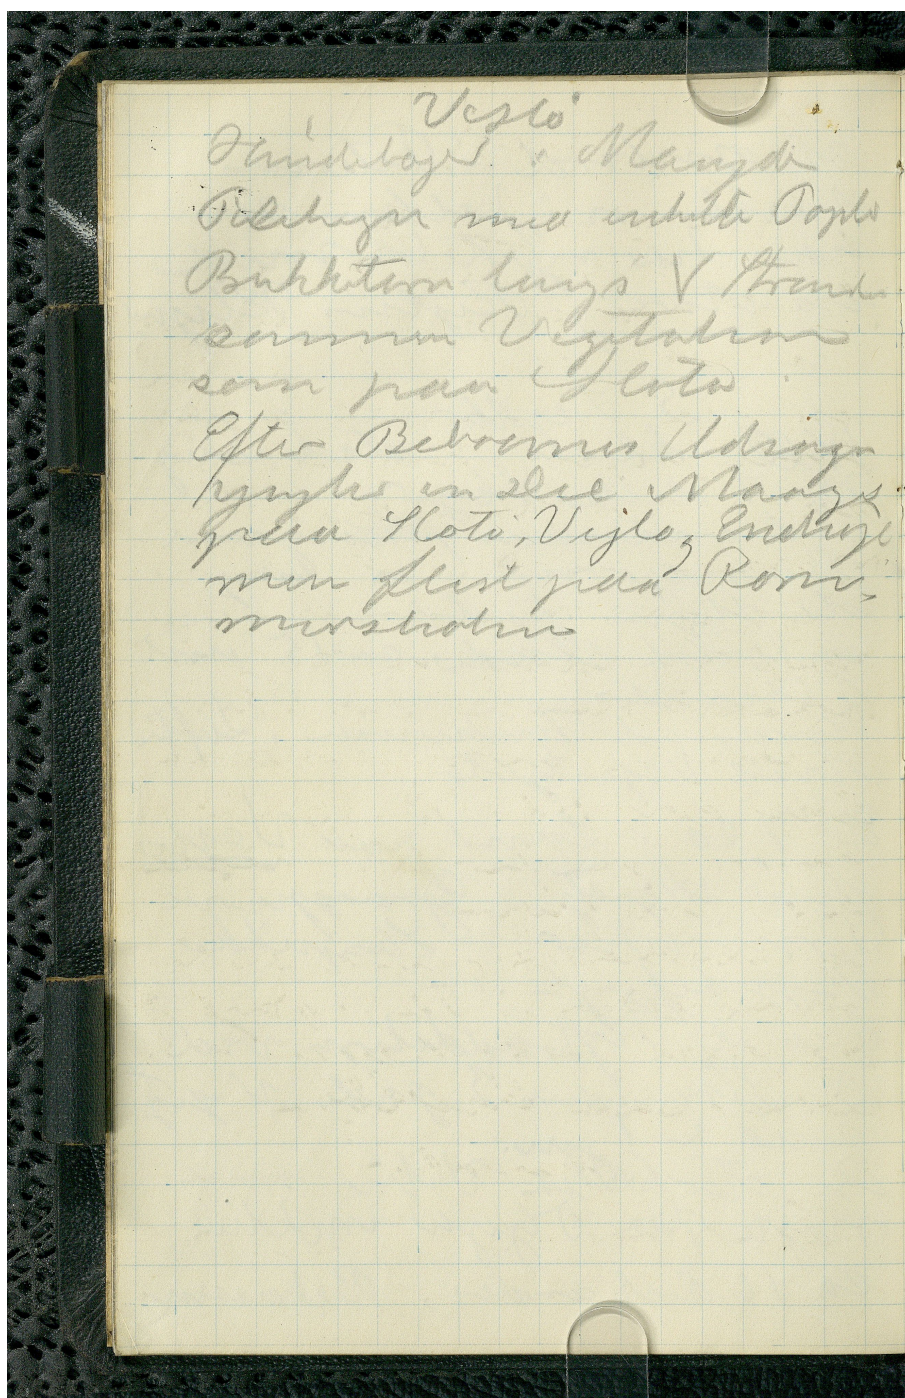 Vejlø
i Mængde
Pilehegn med enkelte Popler
Bukketorn langs V Strand
samme Vegetation
som paa Slotø.
Efter Beboernes Udsagn
yngler en Del Maager
paa Slotø, Vejlø, Enehøje
men flest paa Rom,
mersholm